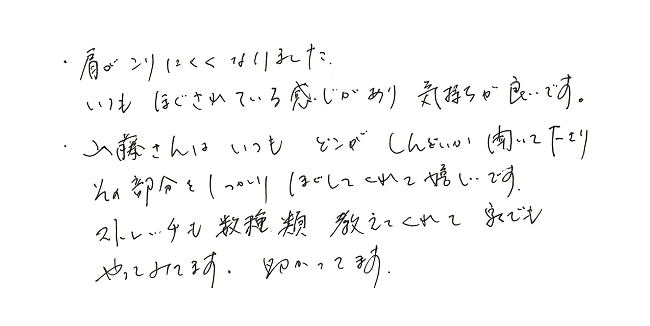 ・肩がコリにくくなりました.
いつもほぐされている感じがあり 気持ちが良いです。
・山藤さんは いつも どこが しんどいか 聞いてたり
その部分をしっかりほぐしてくれて嬉しいです.
ストレッチも数種類 教えてくれて 家でも
やってみてます. 助かってます.